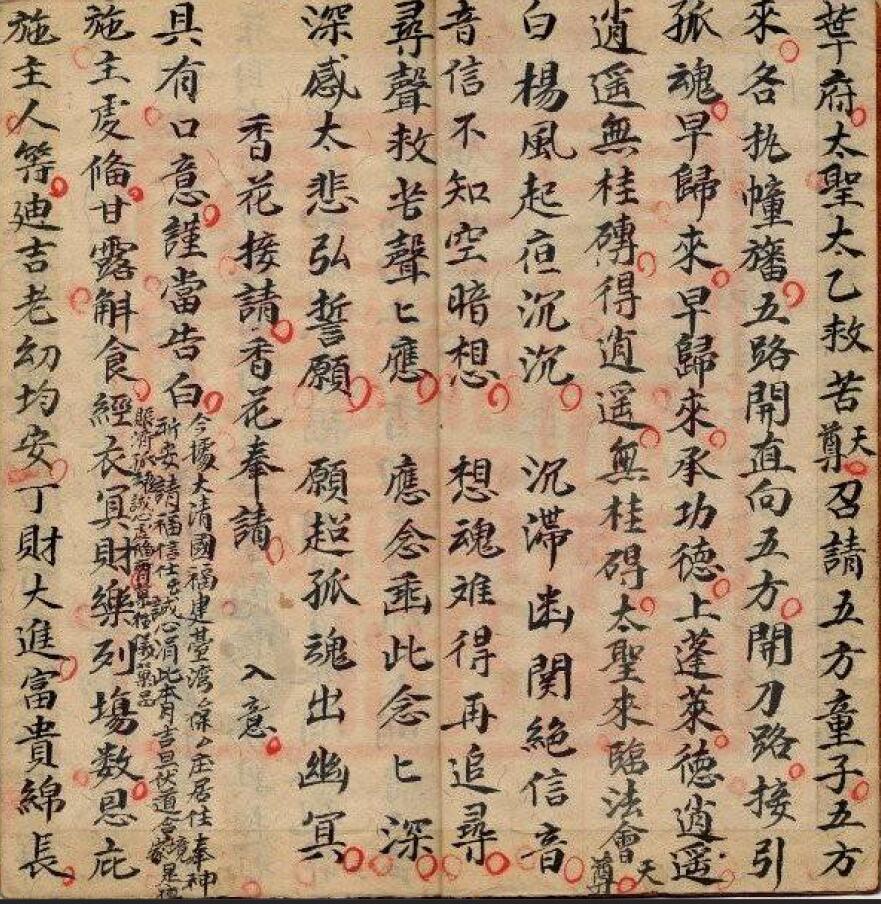 華府太聖太乙救苦天尊召請五方童子五方
來各执幢旛五路開直向五方開刀路接引
孤魂早歸來早歸來承功德上蓬萊德逍遥
逍遥無桂礡得逍遥無桂碍太聖來臨法會天尊
白楊風起夜沉沉 沉滯幽関絶信音
音信不知空暗想 想魂难得再追尋
尋聲救苦聲匕應 應念垂此念匕深
深感太悲弘誓願 願超孤魂出幽冥
香花接請香花奉請 入意
具有口意謹當告白
今據大清國福建臺湾保庄居住奉神
祈安請福信士誠心涓此本月吉旦伏道
施主虔俻甘露斛食經衣冥財樂列塲数恩庇
施主人等廸吉老幼均安丁財大進富貴綿長